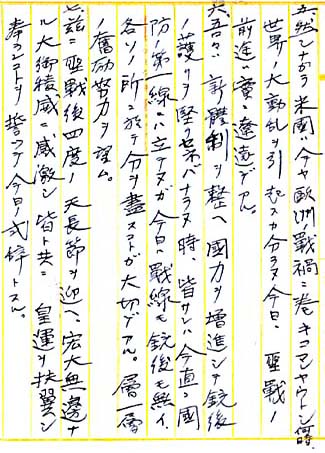 五、然シナガラ米國ハ今ヤ歐洲戰禍ニ巻キコマレヤウトシ何時
世界ノ大動乱ヲ引起スカ分ラヌ今日、聖戰ノ
前途ハ實ニ遼遠デアル。
六、吾々ハ新體制ヲ整ヘ國力ヲ増進シテ銃後
ノ護リヲ堅クセネバナラヌ時、皆サンハ今直ニ國
防ノ第一線ニハ立テヌガ今日ハ戰線モ銃後モ無イ、
各〻ノ所ニ於テ分ヲ盡スコトガ大切デアル。層一層
ノ奮励努力ヲ望ム。
七、茲ニ聖戰後四度ノ天長節ヲ迎ヘ、宏大無邊ナ
ル大御稜威ニ感激シ皆ト共ニ 皇運ヲ扶翼シ
奉ランコトヲ誓ツテ今日ノ式辞トスル。